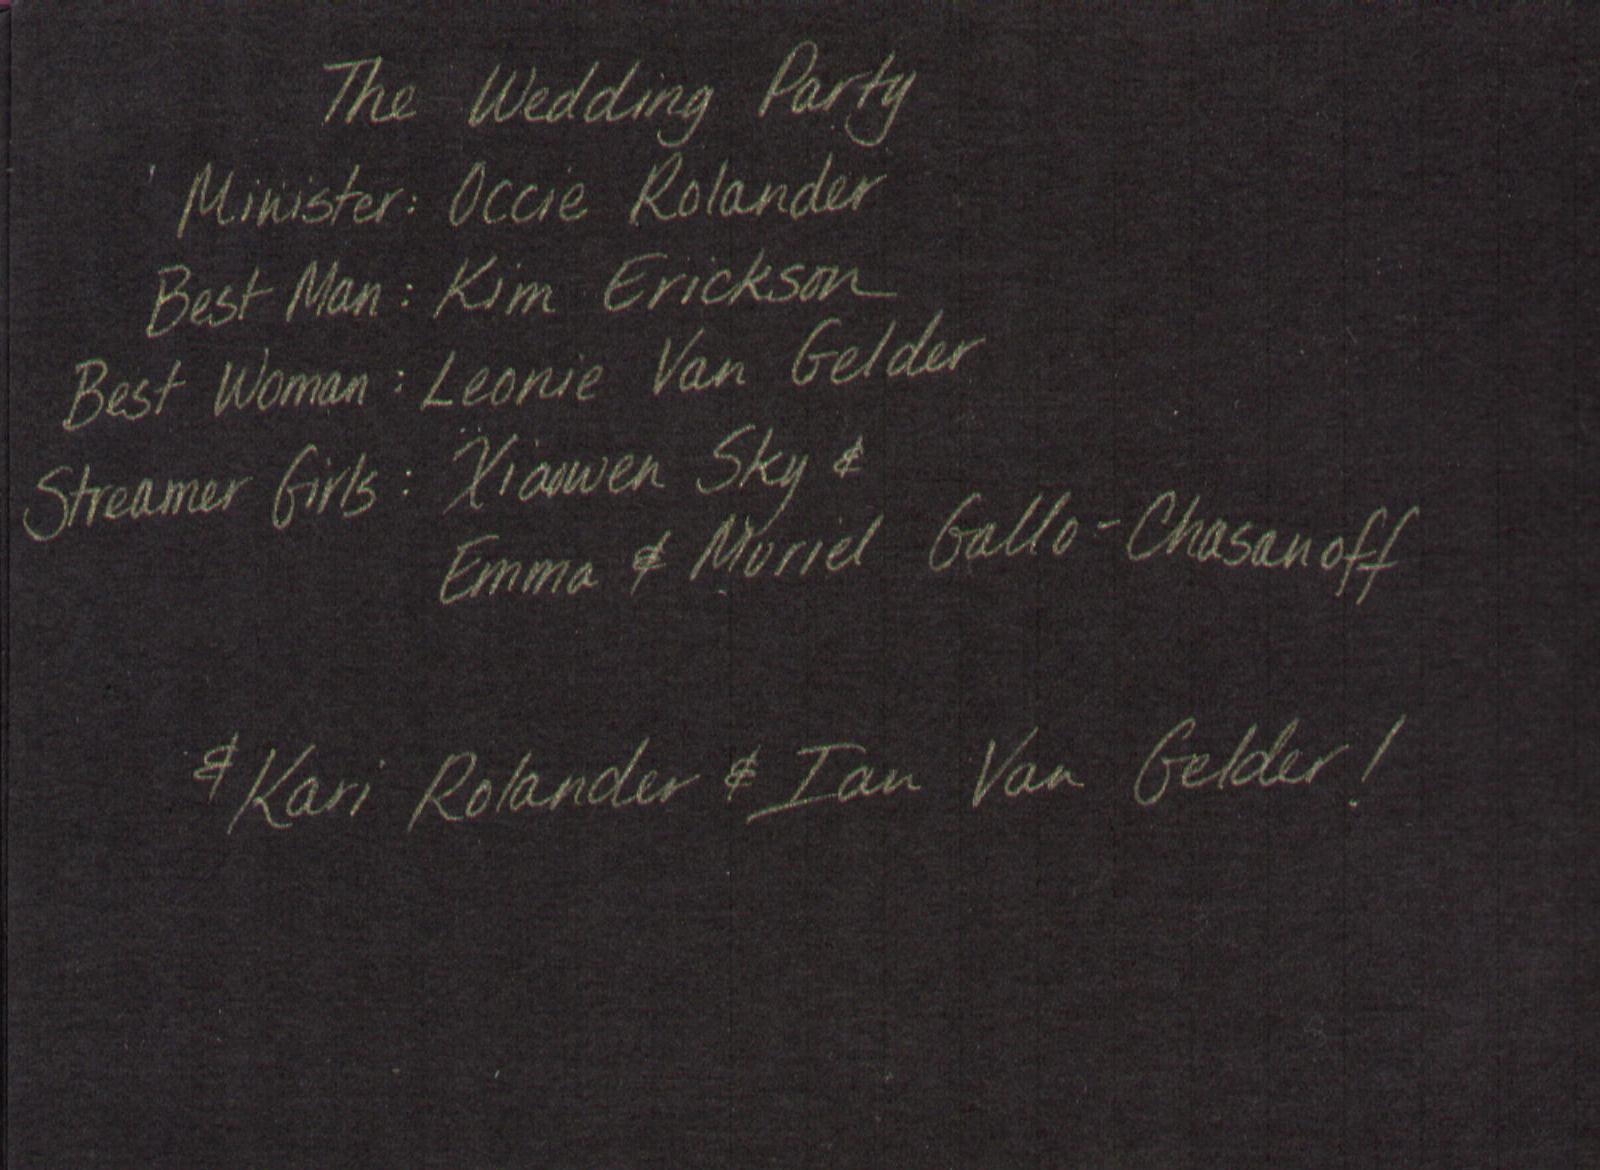 The Wedding Party
Minister: Occie Rolander
Best Man: Kim Erickson
Best Woman: Leonie Van Gelder
Streamer Girls: Xiaowen Sky &
Emma & Muriel Gallo-Chasanoff
& Kari Rolander & Ian Van Gelder!